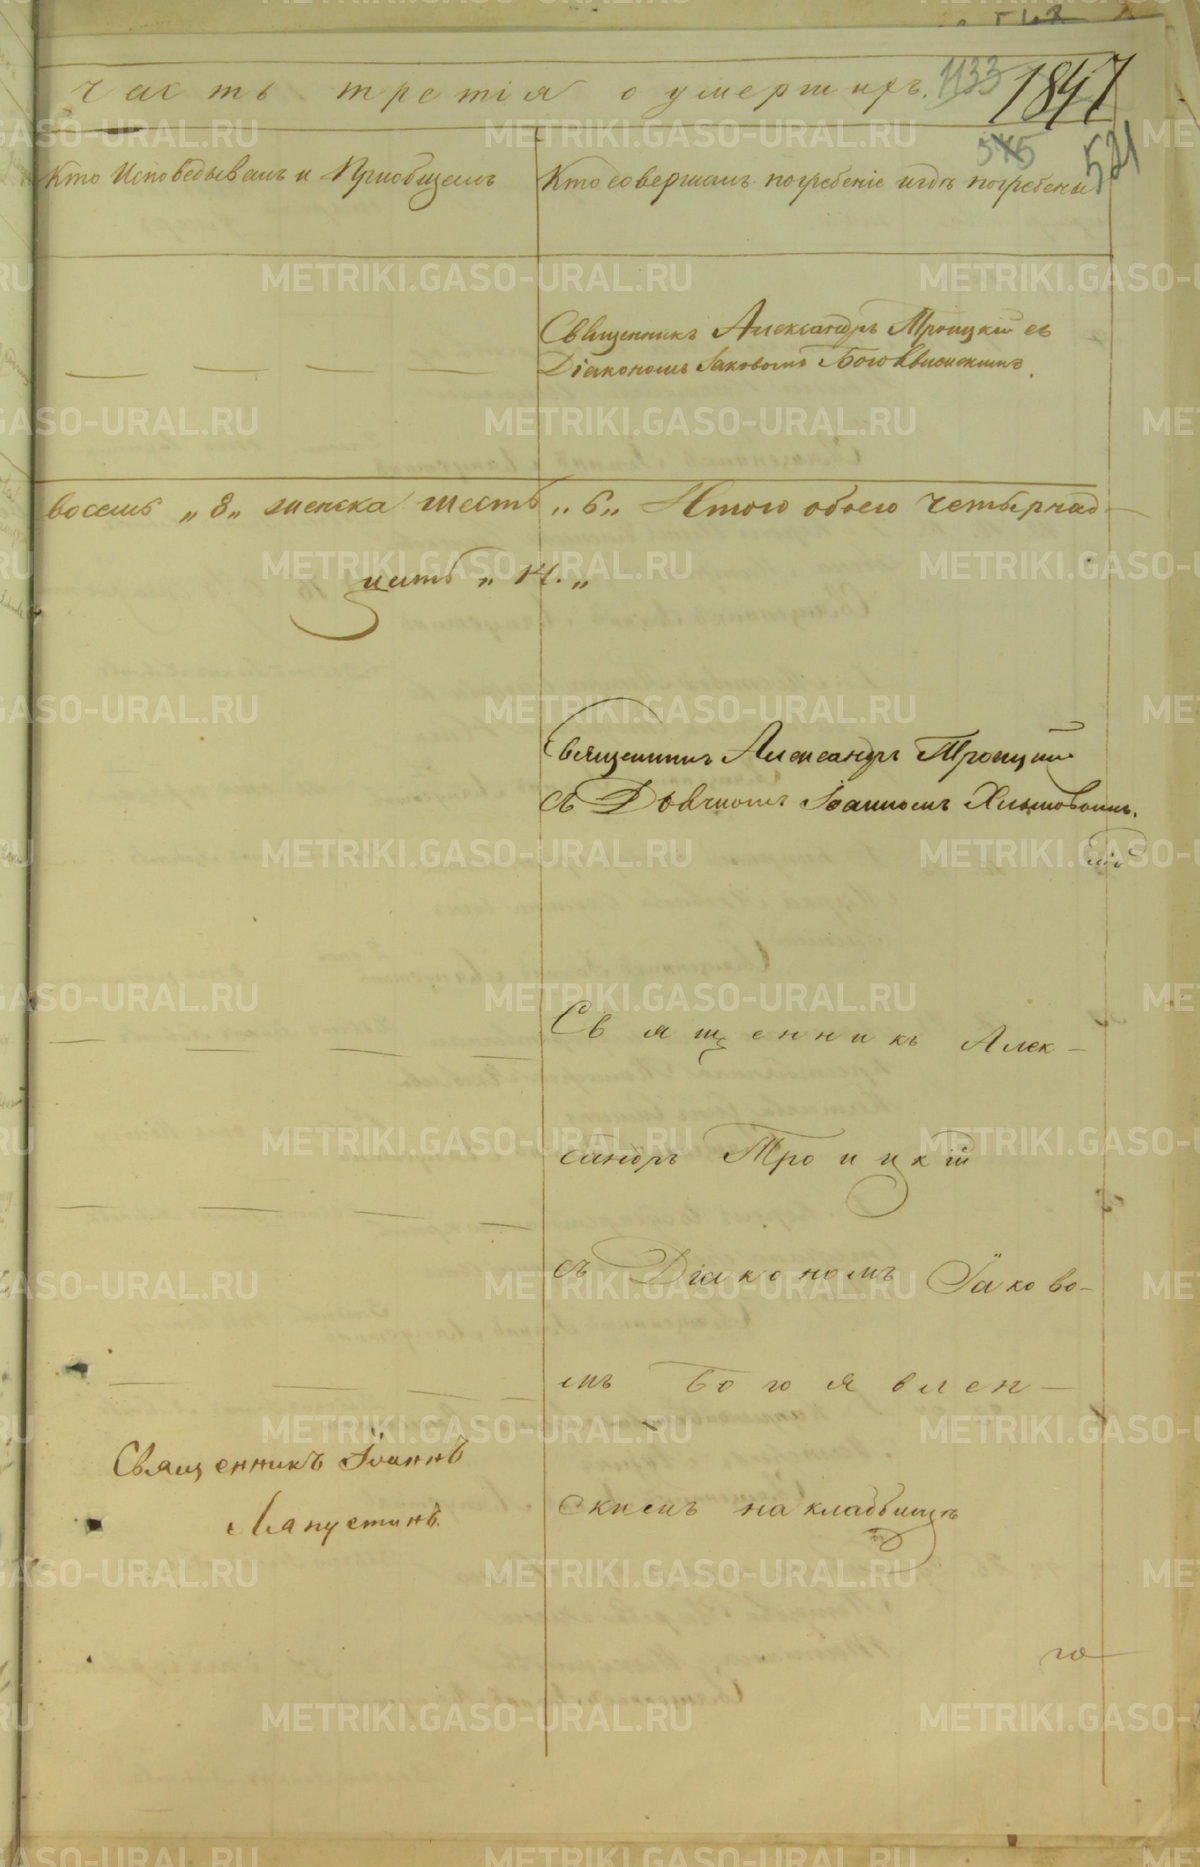 часть третiя о умершихъ. 1133 1847
545 521
Кто Исповедывалъ и Прiобщалъ
Кто совершалъ погребенiе и гдѣ погребены
Священникъ Александръ Троицкiй съ
Дiакономъ Iаковомъ Богоявленскимъ.
восемь „8„ женска шесть „6„ Итого обоего четырнад-
цать „14.„
Священникъ Александръ Троицкiй
съ Дьячкомъ Iоанномъ Хлыновымъ.
Священникъ Алек-
сандръ Троицкiй
съ Дiакономъ Iаково-
мъ Богоявлен-
скимъ на кладбищѣ
Священникъ Iоаннъ
Ляпустинъ.
го
METRIKI.GASO-URAL.RU